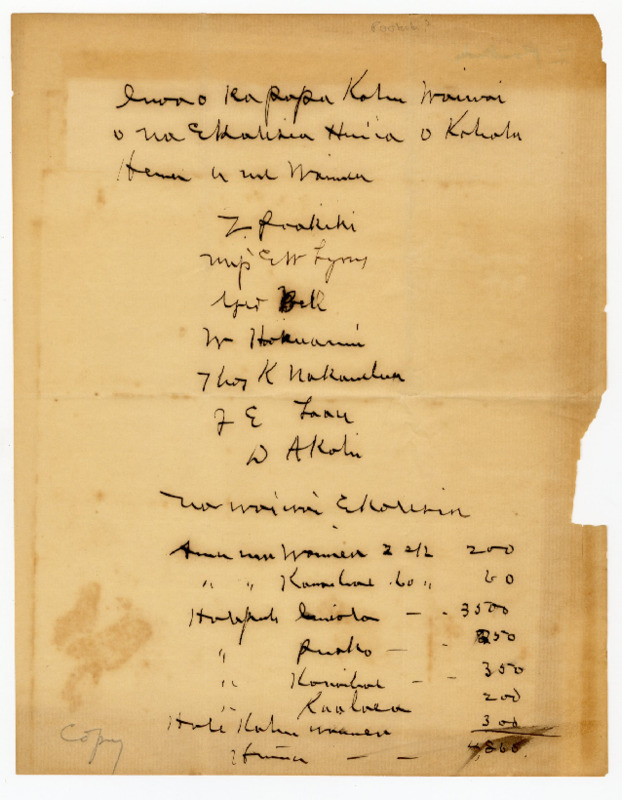 Inoa o ka papa Kahu Waiwai
o na Ekalesia Huiia o Kohala
Hema a me Waimea
Z Paakiki
Miss E W Lyons
Geo Bell
W Hokuanui
Thos K Nakanelua
J E
D Akahi
Na waiwai Ekalesia
Aina ma Waimea 2 200
" " Kawaihae 60 " 60
Halepule Imiola - - 3500
" Puako - - 250
" Kawaihae - - 350
" 200
Hale Kahu Waimea 300
Huina - - 4,860.
Copy